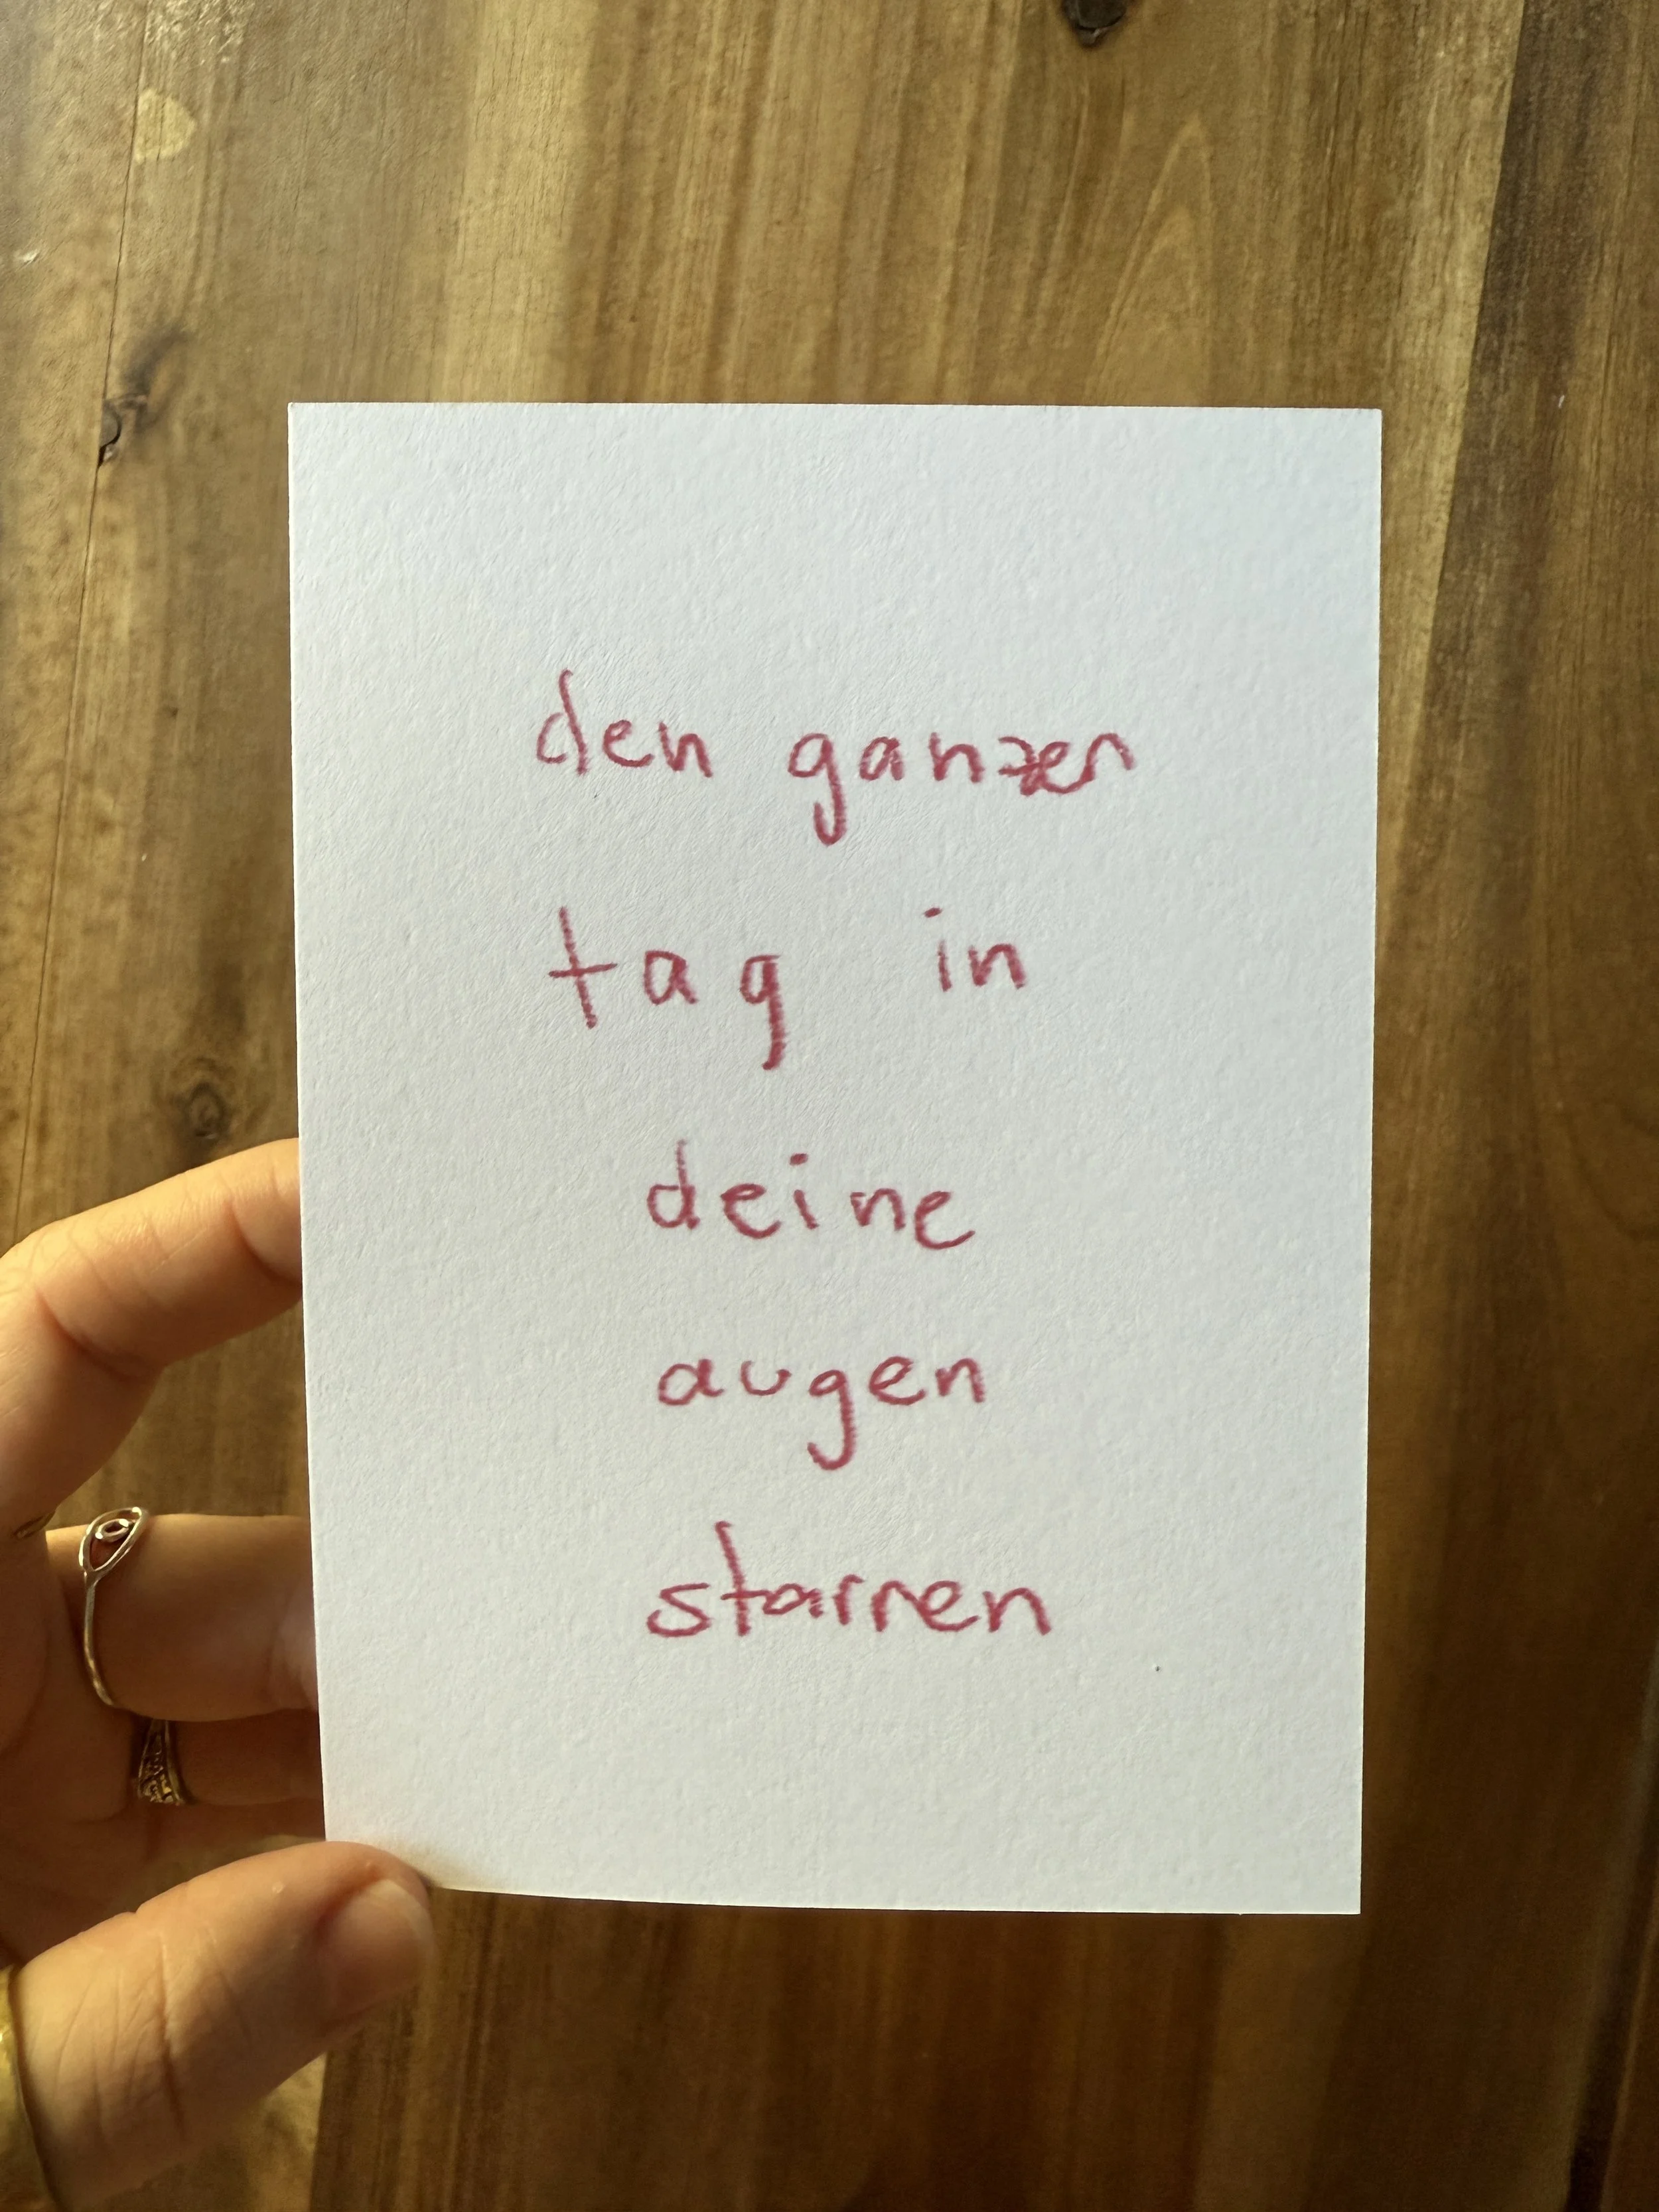 den ganzen
tag in
deine
augen
starren